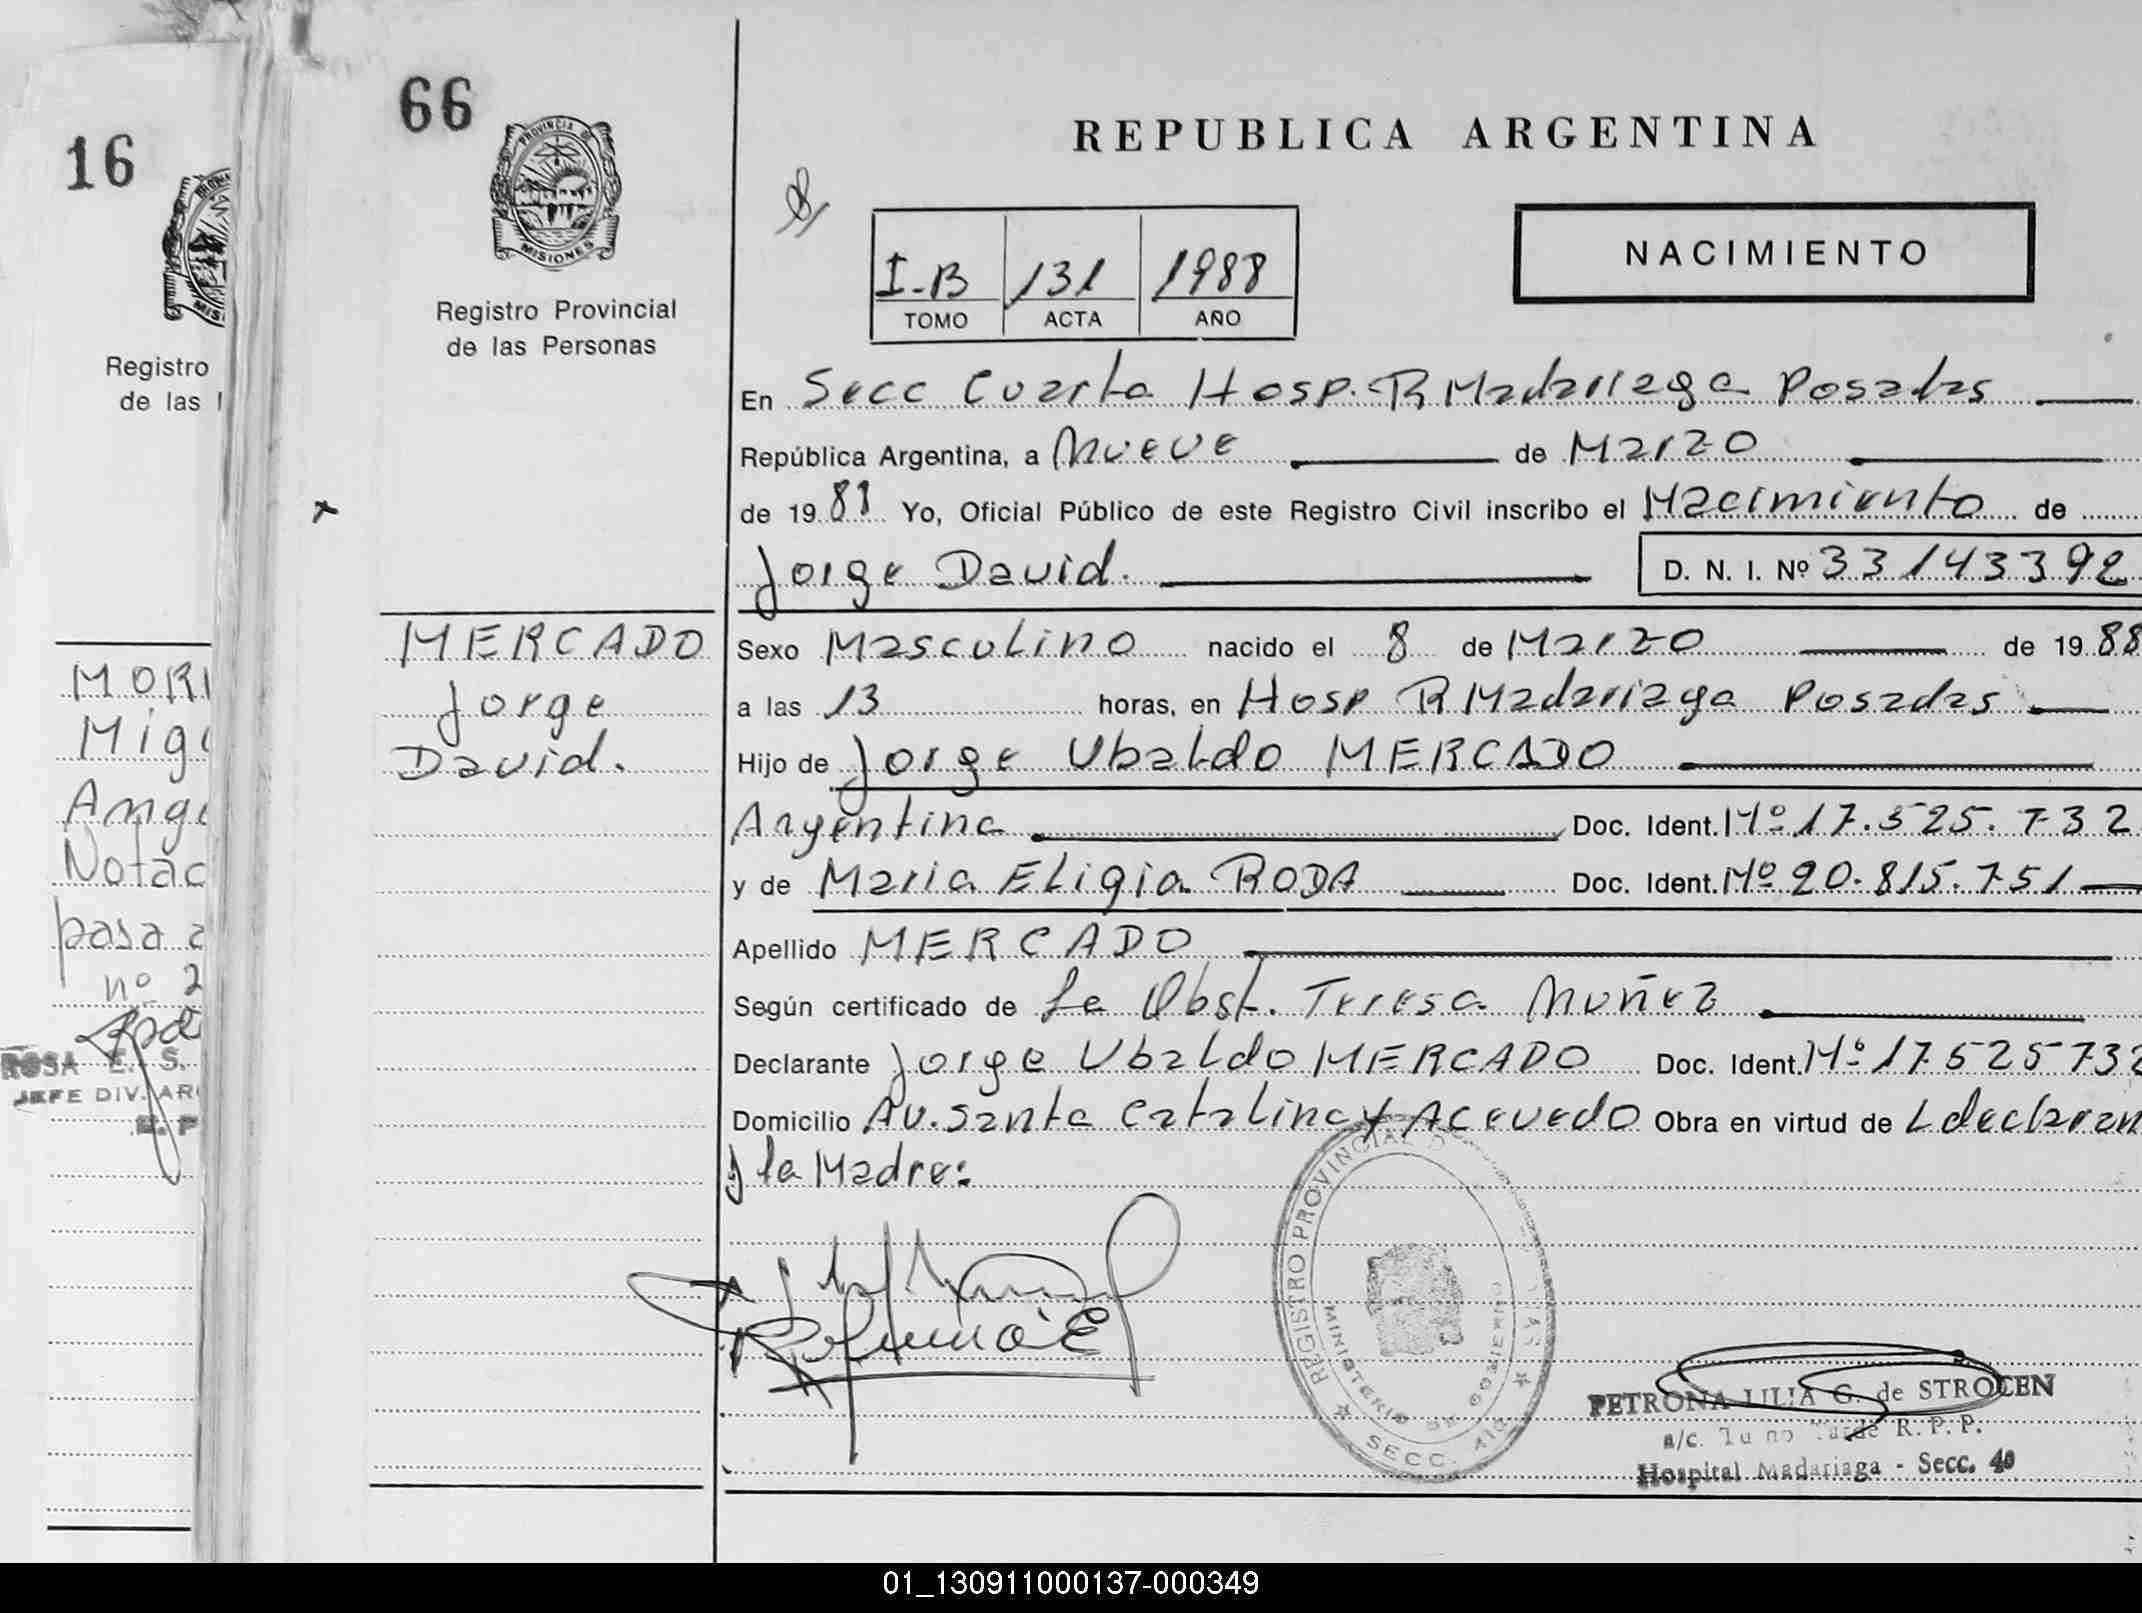 16
Registro
de las
MORI
Migu
Ange
Notac
pasa a
nº 2
ROSA E. S.
JEFE DIV. AR
66
PROVINCIA D
MISIONES
Registro Provincial
de las Personas
MERCADO
Jorge
David.
REPUBLICA ARGENTINA
NACIMIENTO
I-B 131 1988
TOMO ACTA AÑO
En Secc Cuarta Hosp. R Madariaga Posadas
República Argentina, a Nueve de Marzo
de 1988 Yo, Oficial Público de este Registro Civil inscribo el Nacimiento de
Jorge David. D. N. I. Nº 33143392
Sexo Masculino nacido el 8 de Marzo de 1988
a las 13 horas, en Hosp R Madariaga Posadas
Hijo de Jorge Ubaldo MERCADO
Argentina Doc. Ident. Nº 17.525.732
y de Maria Eligia RODA Doc. Ident. Nº 20.815.751
Apellido MERCADO
Según certificado de La Obst. Teresa Muñez
Declarante Jorge Ubaldo MERCADO Doc. Ident. Nº 17525732
Domicilio Av. Santa Catalina y Acevedo Obra en virtud de L declaran
y la Madre:
REGISTRO PROVINCIAL D
MINISTERIO DE GOBIERNO
SECC. 4ta
PETRONA LILIA G. de STROCEN
a/c. Turno Tarde R. P. P.
Hospital Madariaga - Secc. 4a
01_130911000137-000349